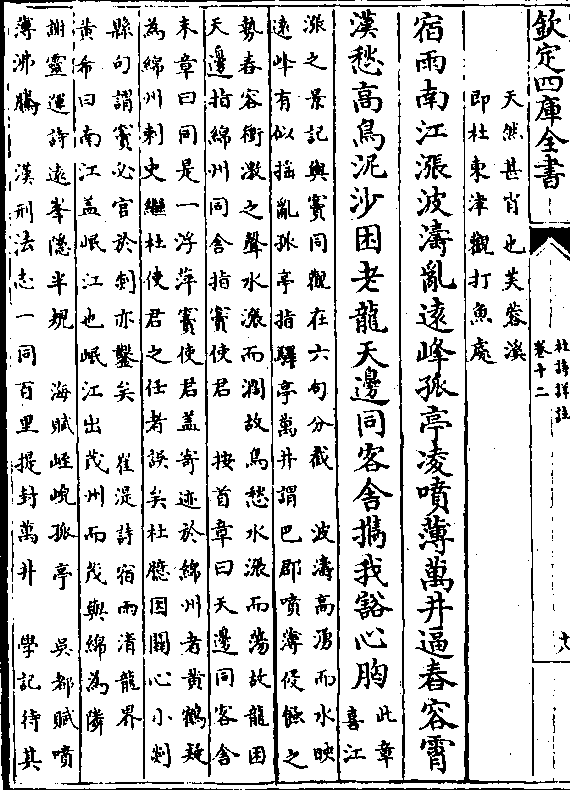 欽定四庫全書
杜詩詳註
卷十二
十八
天然甚肖也芙蓉溪
即杜東津觀打魚處
宿雨南江漲波濤亂遠峰孤亭凌噴薄萬井逼舂容霄
漢愁高鳥泥沙困老龍天邊同客舍攜我豁心胸
此章
喜江
漲之景記與竇同觀在六句分截 波濤高湧而水映
遠峰有似摇亂孤亭指驛亭萬井謂巴郡噴薄侵蝕之
勢舂容衝激之聲水漲而濶故鳥愁水漲而蕩故龍困
天邊指綿州同舍指竇使君 按首章曰天邊同客舍
末章曰同是一浮萍竇使君盖寄迹於綿州者黄鶴疑
為綿州刺史繼杜使君之任者誤矣杜臆因關心小剡
縣句謂竇必官於剡亦鑿矣 崔湜詩宿雨清龍界
黄希曰南江盖岷江也岷江出茂州而茂與綿為隣
謝靈運詩遠峯隱半規 海賦㟷㟅孤亭 吳都賦噴
薄沸騰 漢刑法志一同百里提封萬井 學記待其